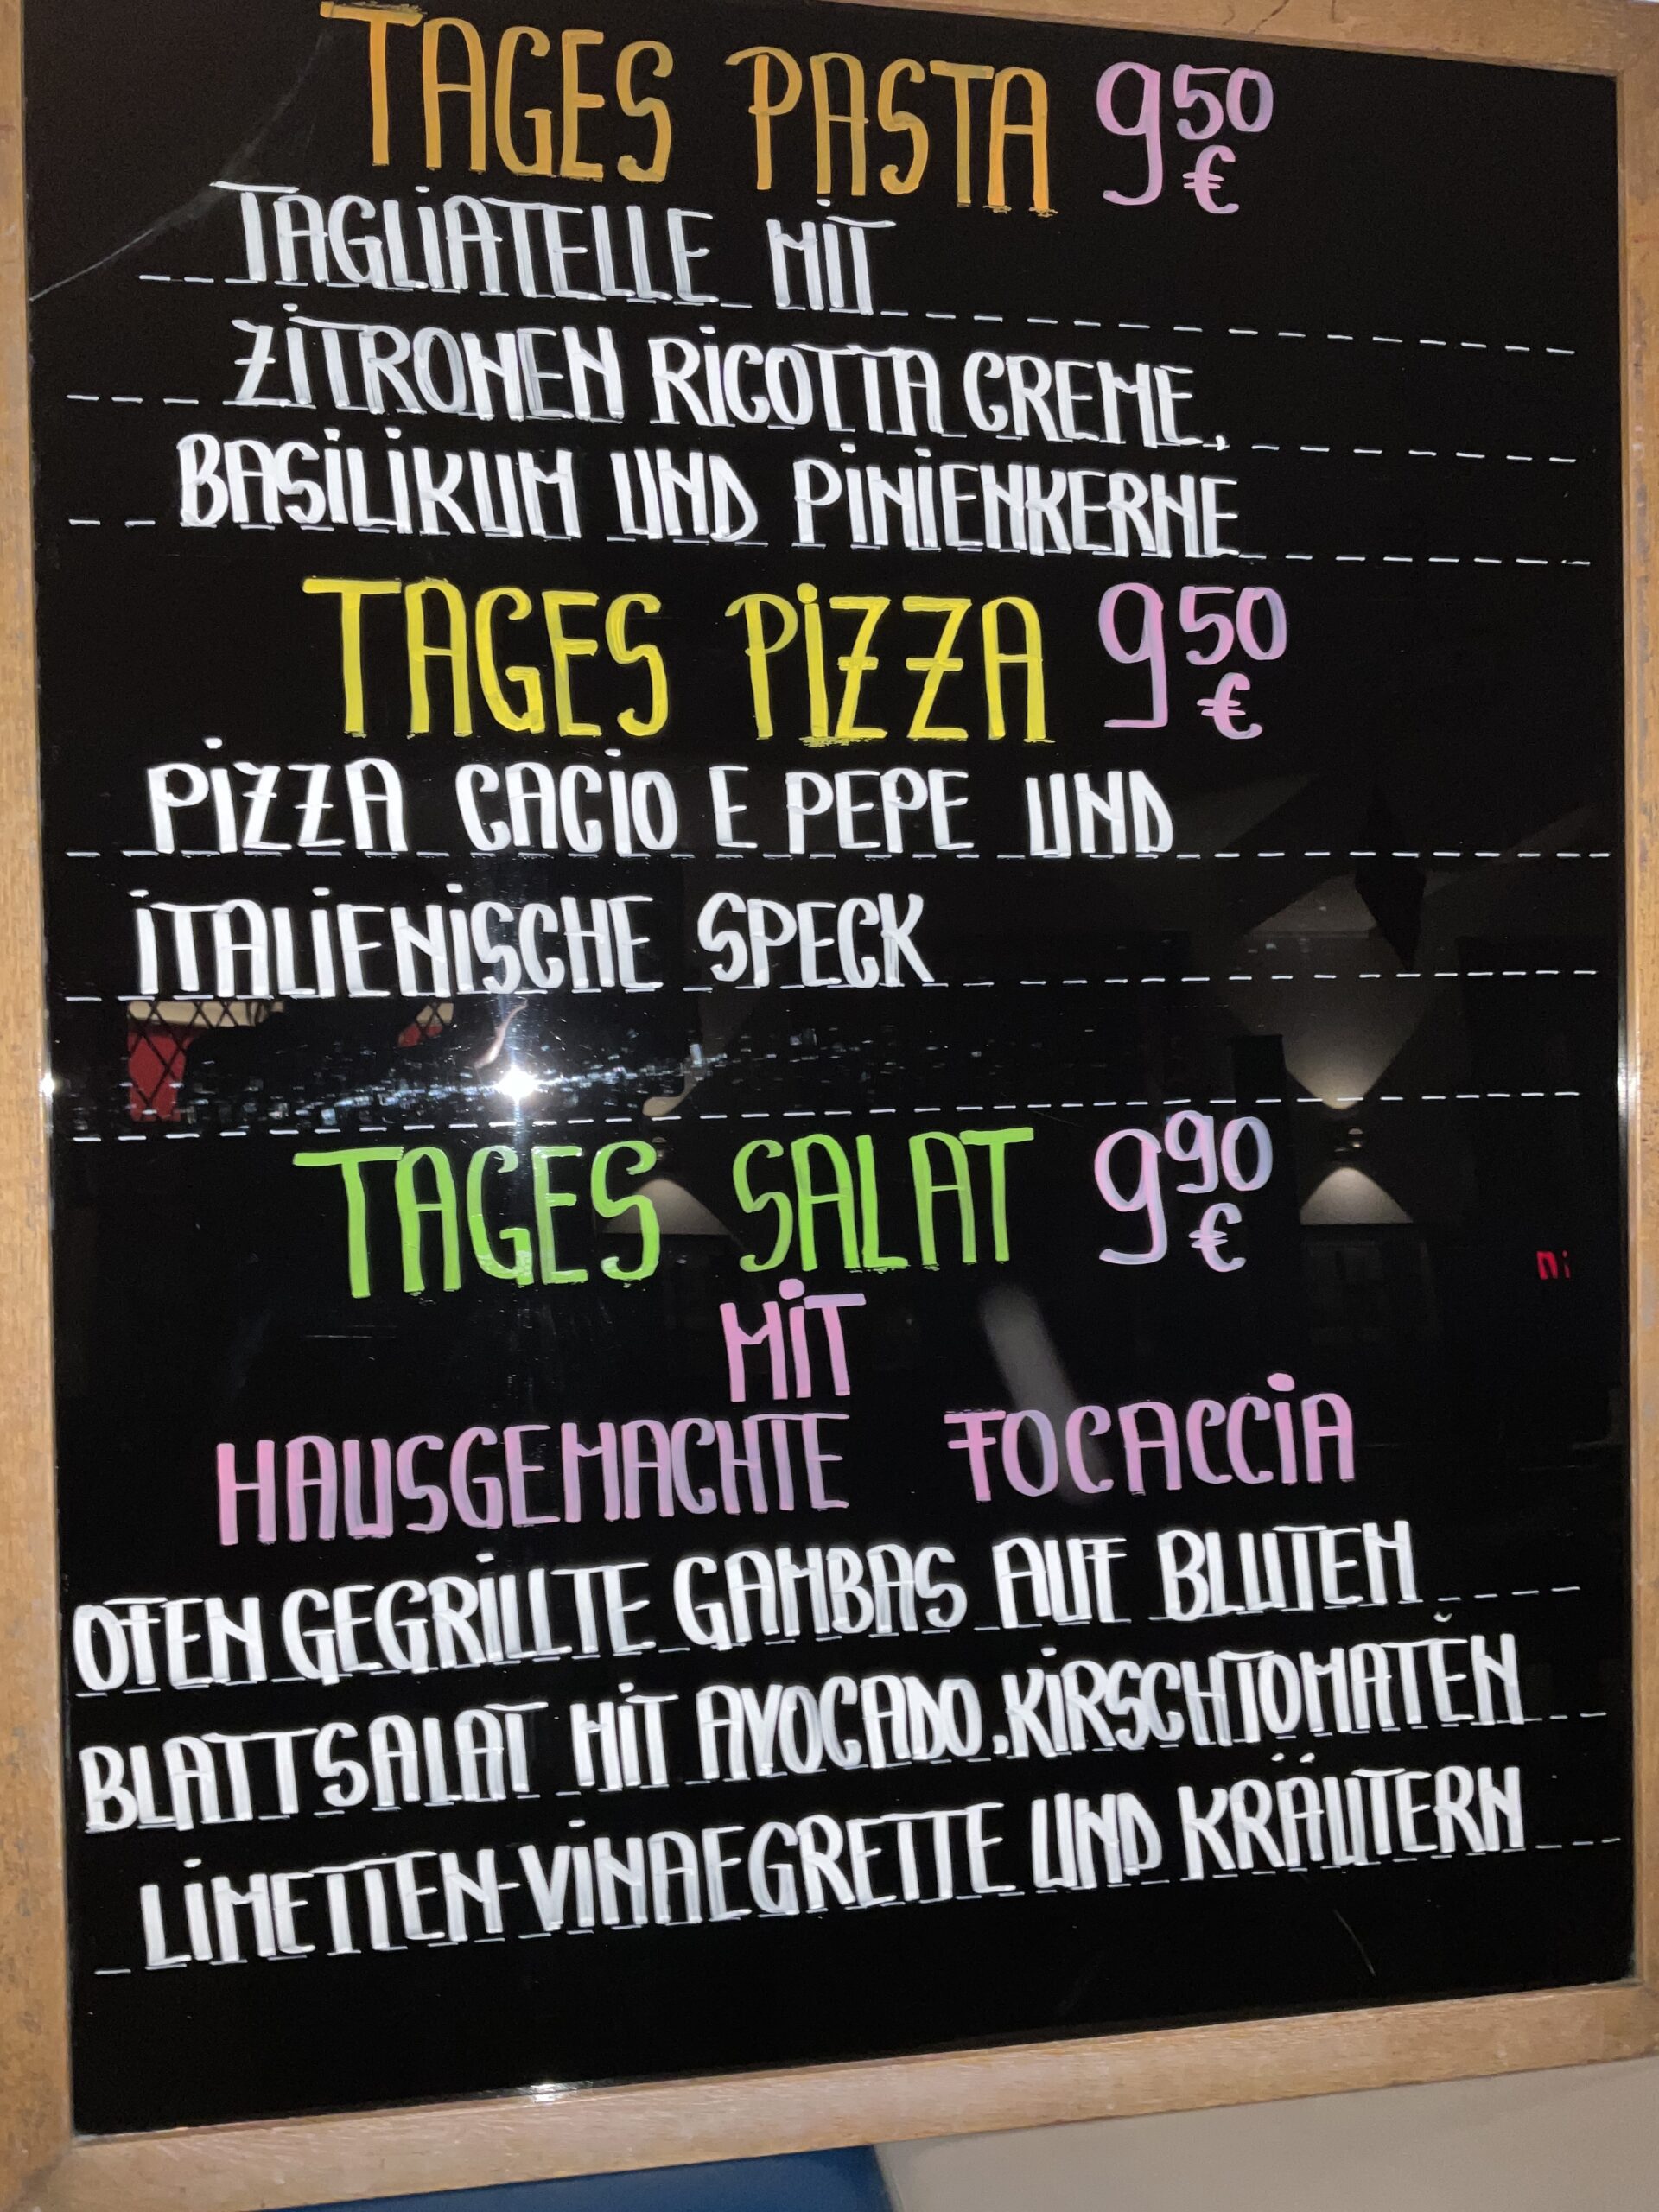 TAGES PASTA 9 50 €
TAGLiATELLE MiT
ZiTRONEN RiCOTTA CREME,
BASiLiKUM UND PiNiENKERNE
TAGES PiZZA 9 50 €
PiZZA CACiO E PEPE UND
iTALiENiSCHE SPECK
TAGES SALAT 9 90 €
MiT
HAUSGEMACHTE FOCACCiA
OFEN GEGRiLLTE GAMBAS AUF BLUTEN
BLATTSALAT MiT AVOCADO.KiRSCHTOMATEN
LiMETTEN-ViNAEGRETTE UND KRÄUTERN